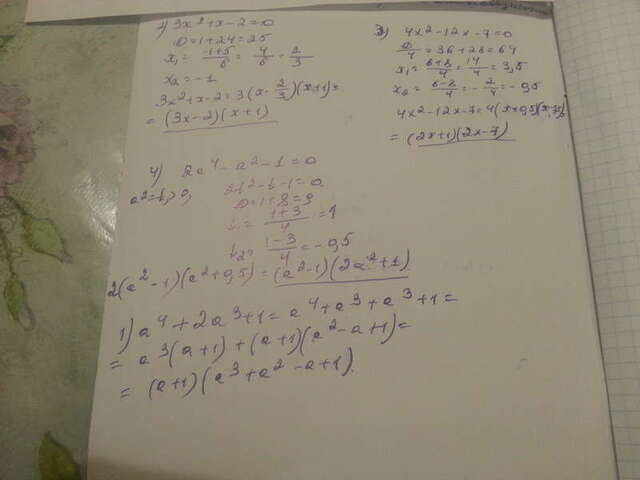 1) 3x²+x-2=0
D=1+24=25
x₁= (-1+5)/6 = 4/6 = 2/3
x₂=-1
3x²+x-2=3(x-2/3)(x+1)=
=(3x-2)(x+1)
3) 4x²-12x-7=0
D/4=36+28=64
x₁= (6+8)/4 = 14/4 = 3,5
x₂= (6-8)/4 = -2/4 = -0,5
4x²-12x-7=4(x+0,5)(x-3,5)
=(2x+1)(2x-7)
4) 2a⁴-a²-1=0
a²=t>0,
2t²-t-1=0
D=1+8=9
t₁= (1+3)/4 =1
t₂= (1-3)/4 =-0,5
2(a²-1)(a²+0,5)=(a²-1)(2a²+1)
1) a⁴+2a³+1=a⁴+a³+a³+1=
=a³(a+1)+(a+1)(a²-a+1)=
=(a+1)(a³+a²-a+1)